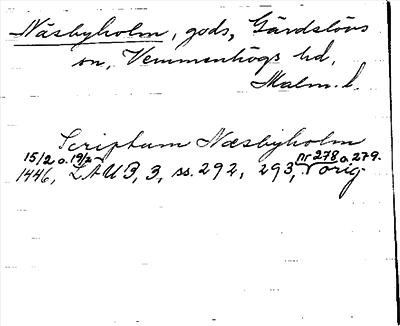 Näsbyholm, gods, Gärdslövs
sn, Vemmenhögs hd,
Malm. l.
Scriptum Næsbyholm
15/2 o. 19/2 nr 278 o. 279.
1446, LAUB, 3, ss. 292, 293, orig